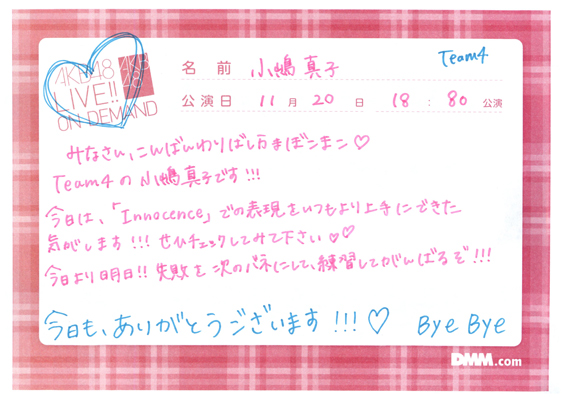 AKB48
LIVE!!
ON DEMAND
AKB
48
Team4
名 前 小嶋 真子
公演日 11 月 20 日 18 : 80 公演
みなさん、こんばんわりばしおまぼンまこ♡
Team4の小嶋真子です!!!
今日は、「Innocence」での表現をいつもより上手にできた
気がします!!! ぜひチェックしてみて下さい♡♡
今日より明日!! 失敗を次のバネにして、練習してがんばるぞ!!!
今日も、ありがとうございます!!!♡ Bye Bye
DMM.com